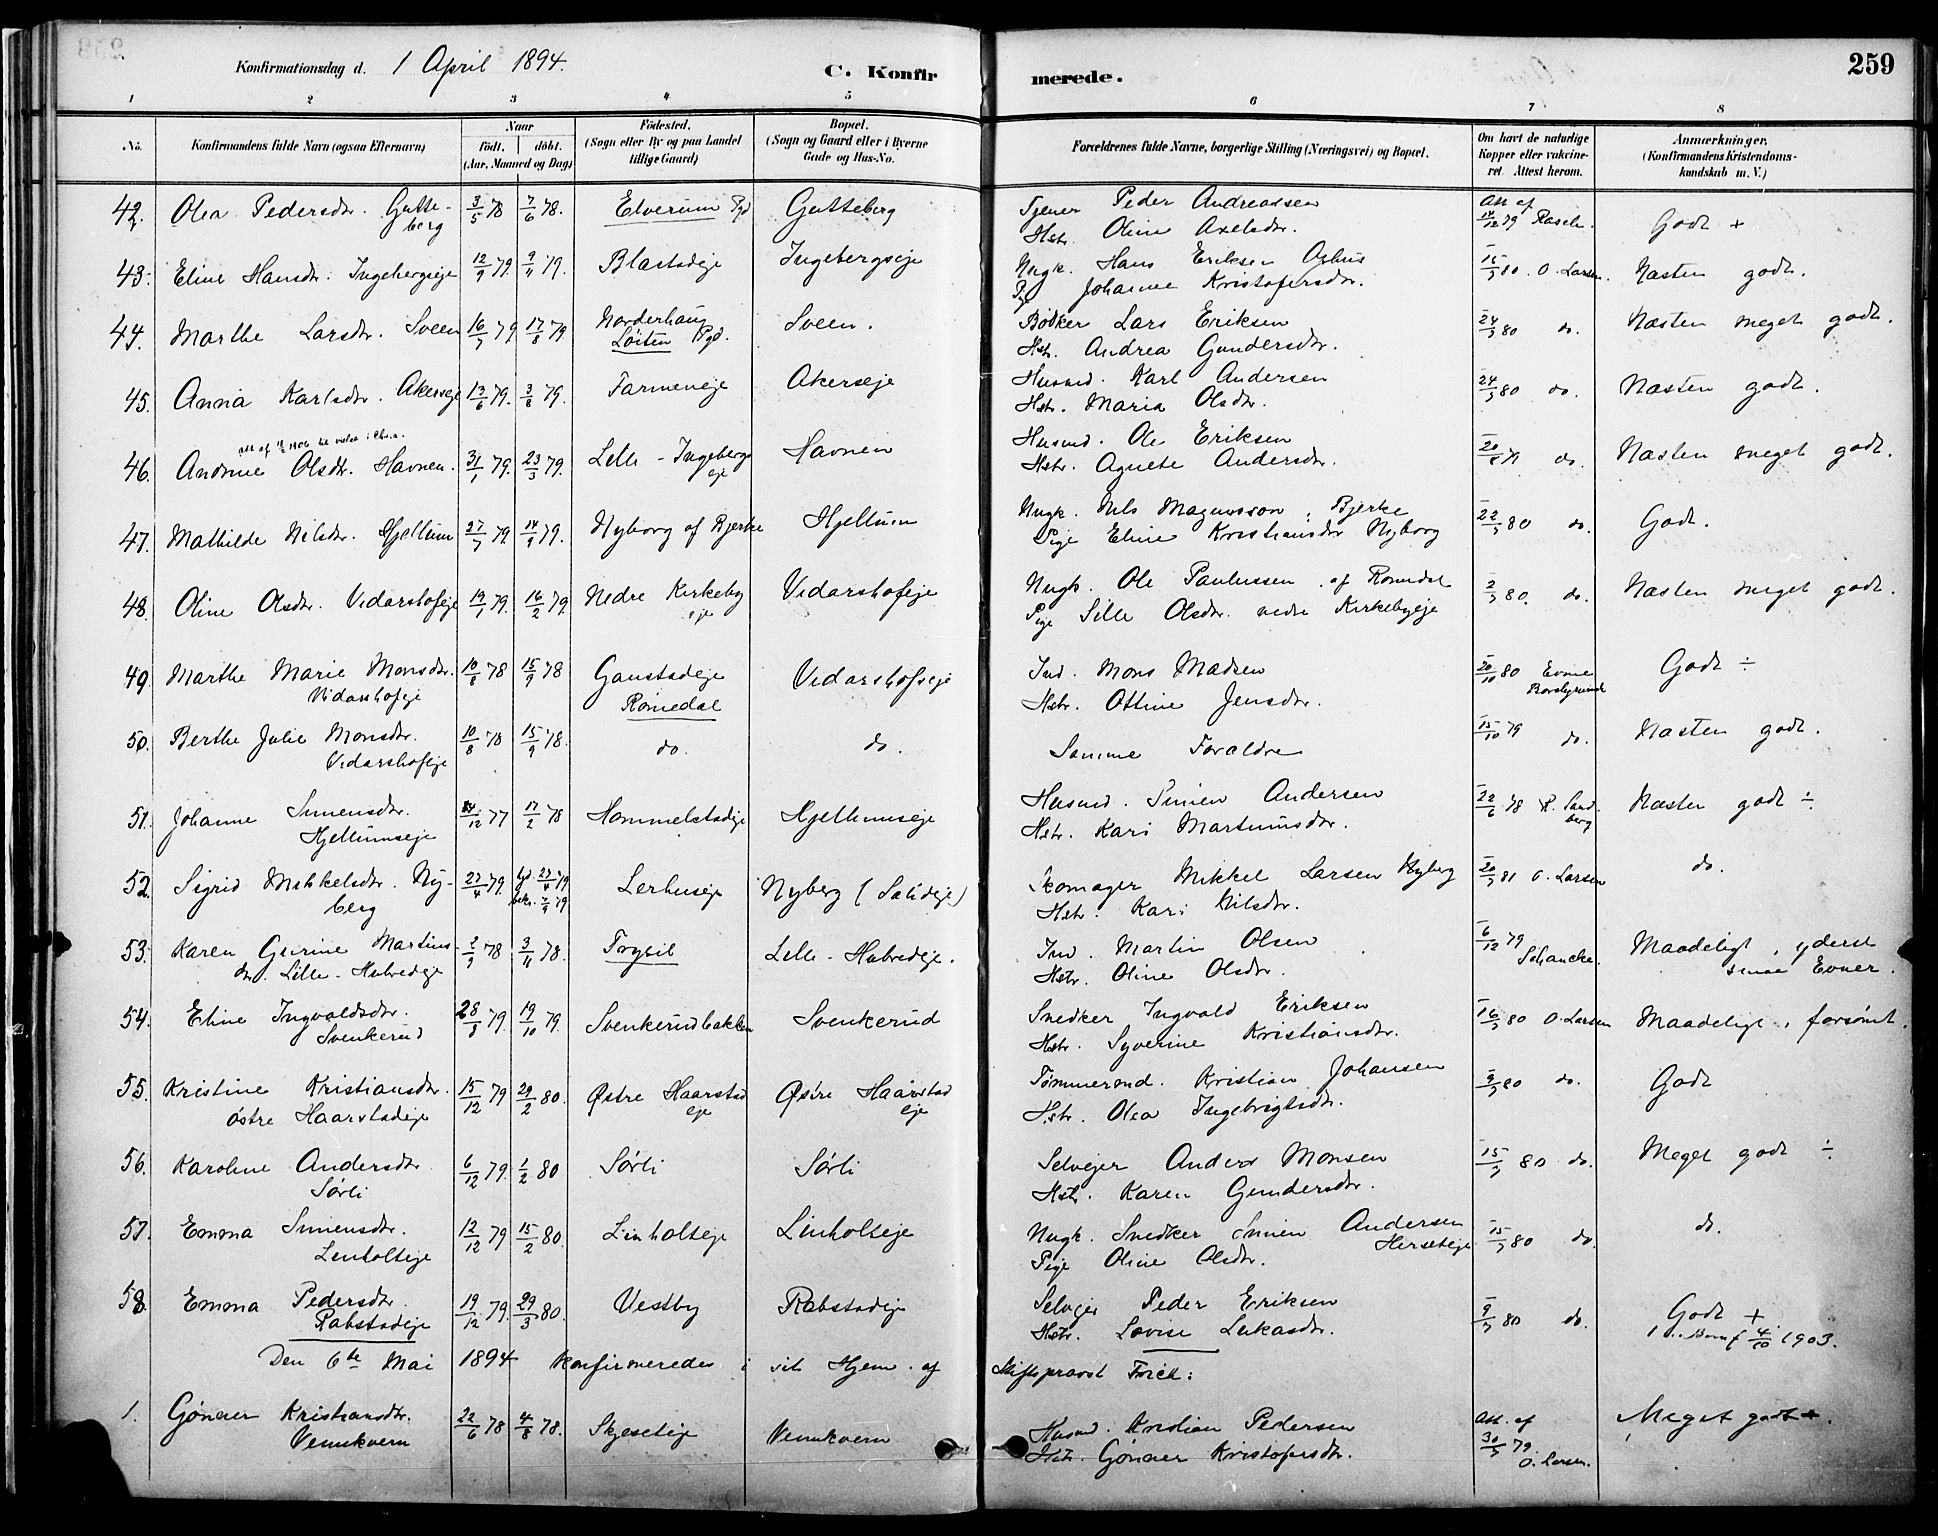 Konfirmationsdag d. 1 April 1894.
C. Konfirmerede.
259
1 2 3 4 5 6 7 8
No. Konfirmandens fulde Navn (ogsaa Efternavn) Naar født. døbt. (Aar, Maaned og Dag) Fødested. (Sogn eller By og paa Landet tillige Gaard) Bopæl. (Sogn og Gaard eller i Byerne Gade og Hus-No.) Forældrenes fulde Navne, borgerlige Stilling (Næringsvei) og Bopæl. Om havt de naturlige Kopper eller vakcineret. Attest herom. Anmærkninger. (Konfirmandens Kristendomskundskab m. V.)
42. Olea Pedersdtr. Gutteberg 3/5 78 7/6 78. Elverum Pgd Gutteberg Tjener Peder Andreassen Hstr. Oline Axelsdtr. Att. af 14/12 79 Rasch. Godt +
43. Eline Hansdtr. Ingebergseje 12/9 79. 9/11 79. Blæstadeje Ingebergseje Ungk. Hans Eriksen Pige Johanne Kristofersdtr. 15/7 80. O. Larsen. Næsten godt.
44. Marthe Larsdtr. Sveen 16/7 79 17/8 79 Norderhaug Løiten Pgd. Sveen. Bødker Lars Eriksen Hstr. Andrea Gundersdtr. 24/7 80 do. Næsten meget godt.
45. Anna Karlsdtr. Akerseje 13/6 79. 3/8 79. Farmeneje Akerseje Husmd. Karl Andersen Hstr. Maria Olsdtr. 24/7 80 do. Næsten godt.
46. Andrine Olsdtr. Havnen. 31/1 79. 23/3 79. Lille-Ingebergseje Havnen Husmd. Ole Eriksen Hstr. Agnete Andersdtr. do. Næsten meget godt.
47. Mathilde Nilsdtr. Hjellum 27/7 79 14/9 79. Nyborg af Bjerke Hjellum Ungk. Nils Magnusson, Bjerke Pige Eline Kristiansdtr Nyborg 22/7 80 do. Godt.
48. Oline Olsdtr. Vidarshofeje 19/1 79. 16/2 79. Nedre Kirkebyeje Vidarshofeje Ungk. Ole Paulussen af Romedal Pige Sille Olsdtr. nedre Kirkebyeje 2/7 80. do. Næsten meget godt.
49 Marthe Marie Monsdtr. Vidarshofeje 10/8 78 15/9 78 Gaustadeje Romedal Vidarshofseje Ind. Mons Madsen Hstr. Ottine Jensdtr. 20/10 80 Godt ÷
50. Berthe Julie Monsdtr. Vidarshofeje 10/8 78 15/9 78. do. do. Samme Forældre 15/10 79 do. Næsten godt.
51. Johanne Simensdtr. Hjellumseje 24/12 77 17/2 78 Hommelstadeje Hjellumseje Husmd. Simen Andersen Hstr. Kari Martinusdtr. 22/6 78 P. Sandberg Næsten godt ÷
52. Sigrid Mikkelsdtr. Nyberg 27/4 79. hjd. 27/4 79 bekr. 7/9 79 Lerhuseje Nyberg (Saludeje) Skomager Mikkel Larsen Nyberg Hstr. Kari Nilsdtr. 20/7 81 O. Larsen do.
53. Karen Gurine Martinsdtr. Lille-Halvedeje 2/9 78 3/11 78. Trysil Lille-Halvedeje. Ind. Martin Olsen Hstr. Oline Olsdtr. 6/12 79 Schancke. Maadeligt, yderst smaa Evner.
54. Eline Ingvaldsdtr. Svenkerud 28/8 79. 19/10 79. Svenkerudbakken Svenkerud Snedker Ingvald Eriksen Hstr. Syverine Kristiansdtr. 16/7 80 O. Larsen Maadeligt, forsømt.
55. Kristine Kristiansdtr. østre Haarstadeje 15/12 79 29/2 80. Østre Haarstadeje Østre Haarstadeje Tømmermd. Kristian Johansen Hstr. Olea Ingebrigtsdtr. 9/7 80 do. Godt
56. Karoline Andersdtr Sørli 6/12 79. 1/2 80 Sørli Sørli Selvejer Anders Monsen Hstr. Karen Gundersdtr. 15/7 80 do. Meget godt ÷
57. Emma Simensdtr. Linholteje 12/12 79 15/2 80. Linholteje Linholteje Ungk. Snedker Simen Andersen Herseteje Pige Oline Olsdtr. 15/7 80 do. do.
58. Emma Pedersdtr. Rabstadeje 19/12 79. 29/3 80. Vestby Rabstadeje Selvejer Peder Eriksen Hstr. Lovise Lukasdtr. 9/7 80 do. Godt + 4/10 1903.
Den 6te Mai 1894 konfirmeredes i sit Hjem af Stiftsprovst Frich:
1. Gønner Kristiansdtr. Vennkvern 22/6 78 4/8 78. Skjeseteje Vennkvern Husmd. Kristian Pedersen Hstr. Gønner Kristofersdtr. Att. af 30/7 79. O. Larsen. Meget godt +.